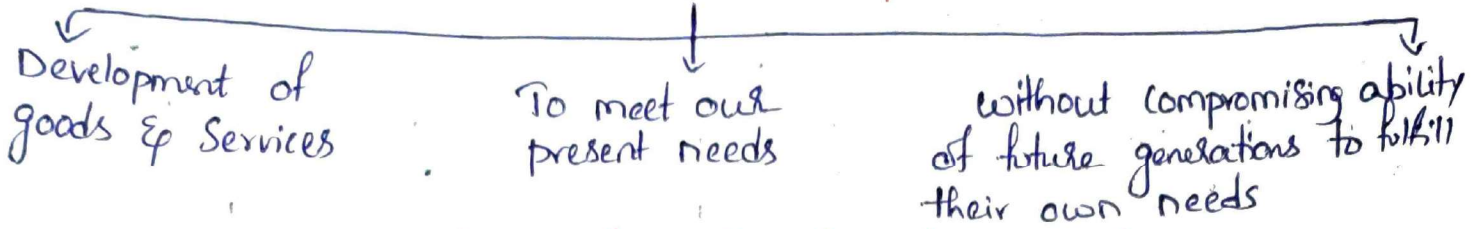 Development of
goods & Services
To meet our
present needs
without compromising ability
of future generations to fulfill
their own needs